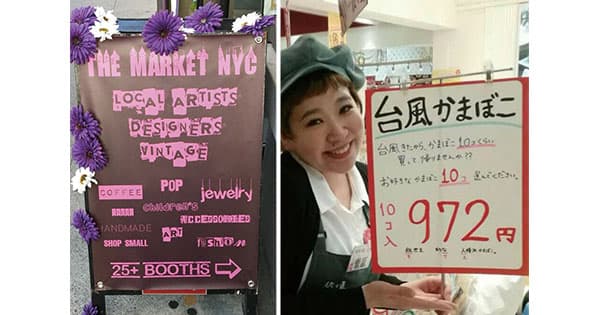 THE MARKET NYC
LOCAL ARTISTS
DESIGNERS
VINTAGE
COFFEE
POP
jewelry
children's
HANDMADE
ACCESSORIES
SHOP SMALL
ART
fashion
25+ BOOTHS
台風かまぼこ
台風きたから、かまぼこ10コくらい
買って帰りませんか??
お好きなかまぼこ10コ選んでください。
10コ入
972円